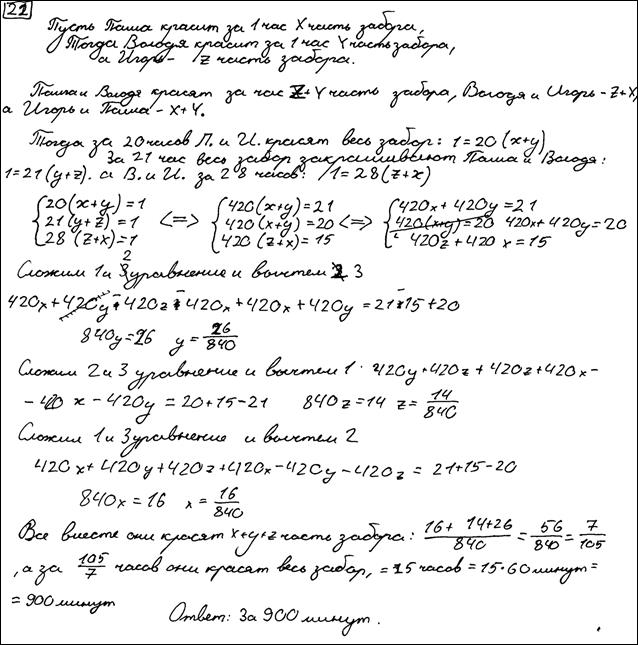 21
Пусть Паша красит за 1 час X часть забора,
Тогда Володя красит за 1 час Y часть забора,
а Игорь - Z часть забора.
Паша и Володя красят за час Z+Y часть забора, Володя и Игорь - Z+X,
а Игорь и Паша - X+Y.
Тогда за 20 часов П. и И. красят весь забор: 1=20(x+y)
За 21 час весь забор закрашивают Паша и Володя:
1=21(y+z). а В. и И. за 28 часов: 1=28(z+x)
{20(x+y)=1 <=> {420(x+y)=21 <=> {420x+420y=21
21(y+z)=1 420(x+y)=20 420(x+y)=20 420x+420y=20
28(z+x)=1 420(z+x)=15 420z+420x=15
Сложим 1 и 2 уравнение и вычтем 3
420x+420y-420z-420x+420x+420y=21-15+20
840y=26 y=26/840
Сложим 2 и 3 уравнение и вычтем 1. 420y+420z+420z+420x-
-420x-420y=20+15-21 840z=14 z=14/840
Сложил 1 и 3 уравнение и вычтем 2
420x+420y+420z+420x-420y-420z=21+15-20
840x=16 x=16/840
Все вместе они красят x+y+z часть забора: (16+14+26)/840=56/840=7/105
, а за 105/7 часов они красят весь забор, =15 часов=15·60 минут=
=900 минут
Ответ: За 900 минут.